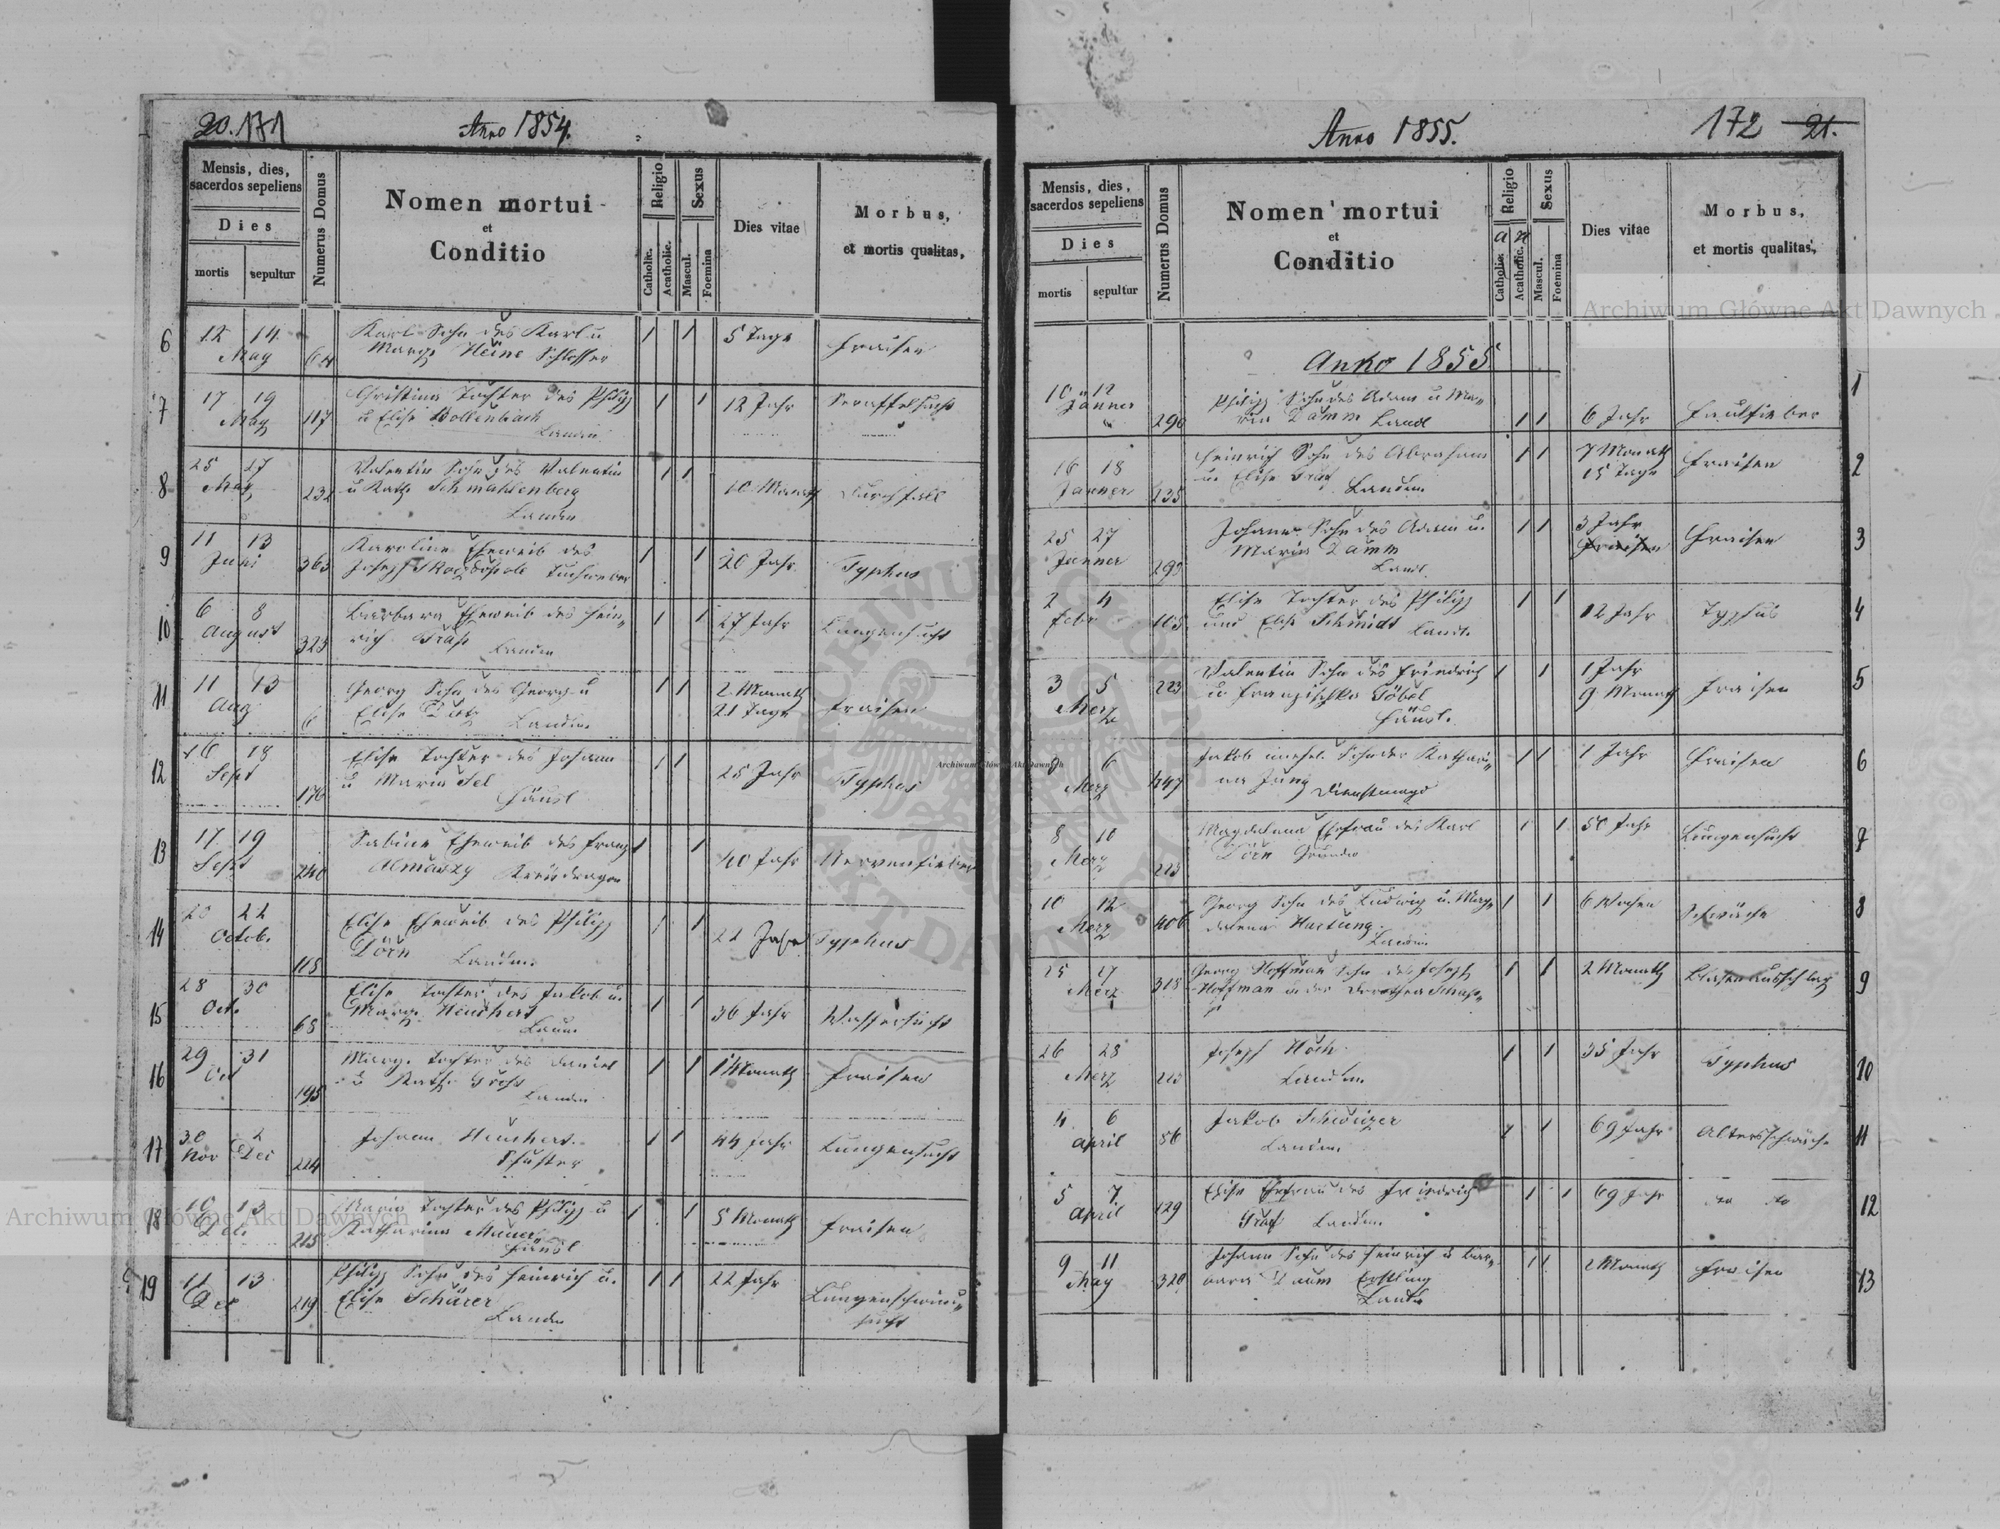 20. 171
Anno 1854.
Mensis, dies,
sacerdos sepeliens
Dies
mortis sepultur
Numerus Domus
Nomen mortui
et
Conditio
Religio
Catholic. Acatholic.
Sexus
Mascul. Foemina
Dies vitae
Morbus,
et mortis qualitas,
6 12 14 Karl Sohn des Karl u 1 1 5 Tage Fraisen
May 64 Marg. Heine Schlosser
7 17 19 Christina Tochter des Philipp 1 1 12 Jahr
May 117 u Elise Bollenbach
Landm
8 25 27 Valentin Sohn des Valentin 1 1
May 232 u Kath. Schmahlenberg 10 Monath Durchfall
Landm
9 11 13 Karoline Eheweib des 1 1 26 Jahr Typhus
Juni 363 Joseph
10 6 8 Barbara Eheweib des Hein- 1 1 27 Jahr Lungensucht
August 323 rich Landm
11 11 13 Georg Sohn des Georg u 1 1 2 Monath Fraisen
Aug 6 Elise Landm. 21 Tage
12 16 18 Elise Tochter des Johann 1 1 25 Jahr Typhus
Sept 176 u Maria Häusl
13 17 19 Sabine Eheweib des Franz 1 1 40 Jahr Nervenfieber
Sept 240 Almaszy
14 20 22 Elise Eheweib des Philipp 1 1 22 Jahr Typhus
Octob. 118 Dörn Landm.
15 28 30 Elise Tochter des Jakob u. 1 1 36 Jahr Wassersucht
Oct. 68 Marg. Heuchert
Landm
16 29 31 Marg. Tochter des Daniel 1 1 1 Monath Fraisen
Oct 195 u Kath. Gross
Landm
17 30 2 Johann Heuchert 1 1 44 Jahr Lungensucht
Nov Dec 224 Schuster
18 10 13 Maria Tochter des Philipp u 1 1 5 Monath Fraisen
Dec. 215 Katharina Mauer
Häusl
19 11 13 Philipp Sohn des Heinrich u. 1 1 22 Jahr Lungenschwind-
Dec 219 Elise Schürer sucht
Landm
Anno 1855.
172 21.
Mensis, dies,
sacerdos sepeliens
Dies
mortis sepultur
Numerus Domus
Nomen mortui
et
Conditio
Religio
Catholic. Acatholic.
Sexus
Mascul. Foemina
Dies vitae
Morbus,
et mortis qualitas,
Anno 1855
10 12 Philipp Sohn des Adam u Ma- 1
Jänner 290 ria Damm Landl 1 1 6 Jahr Faulfieber
16 18 Heinrich Sohn des Abraham 1 1 7 Monath Fraisen 2
Jänner 235 u. Elise Graf Landm 15 Tage
25 27 Johann Sohn des Adam u. 1 1 3 Jahr Fraisen 3
Jänner 290 Maria Damm
Landl.
2 4 Elise Tochter des Philipp 1 1 12 Jahr Typhus 4
Febr 165 und Elis. Schmidt Landl.
3 5 223 Valentin Sohn des Friedrich 1 1 1 Jahr Fraisen 5
Merz u Franzischka Göbel 9 Monath
Häusl.
6 Jakob unehel. Sohn der Kathari- 1 1 1 Jahr Fraisen 6
Merz 447 na Jung Dienstmagd
8 10 Magdalena Ehefrau des Karl 1 1 50 Jahr Lungensucht 7
Merz 223 Dörn
10 12 Georg Sohn des Ludwig u. Mag- 1 1 6 Wochen Schwäche 8
Merz 406 dalena Hartung
Landm.
25 27 318 Georg Hoffman Sohn des Joseph 1 1 2 Monath 9
Merz Hoffman u der Dorothea
26 28 Joseph Hoch 1 1 35 Jahr Typhus 10
Merz 223 Landm.
4 6 Jakob Schweizer 1 1 69 Jahr Altersschwäche 11
April 56 Landm.
5 7 129 Elise Ehefrau des Friedrich 1 1 69 Jahr do do 12
April Graf Landm
9 11 Johann Sohn des Heinrich u Bar- 1 1 2 Monath Fraisen 13
May 320 bara Daum
Landm
Archiwum Główne Akt Dawnych
Archiwum Główne Akt Dawnych
Archiwum Główne Akt Dawnych
ARCHIWUM GŁÓWNE AKT DAWNYCH